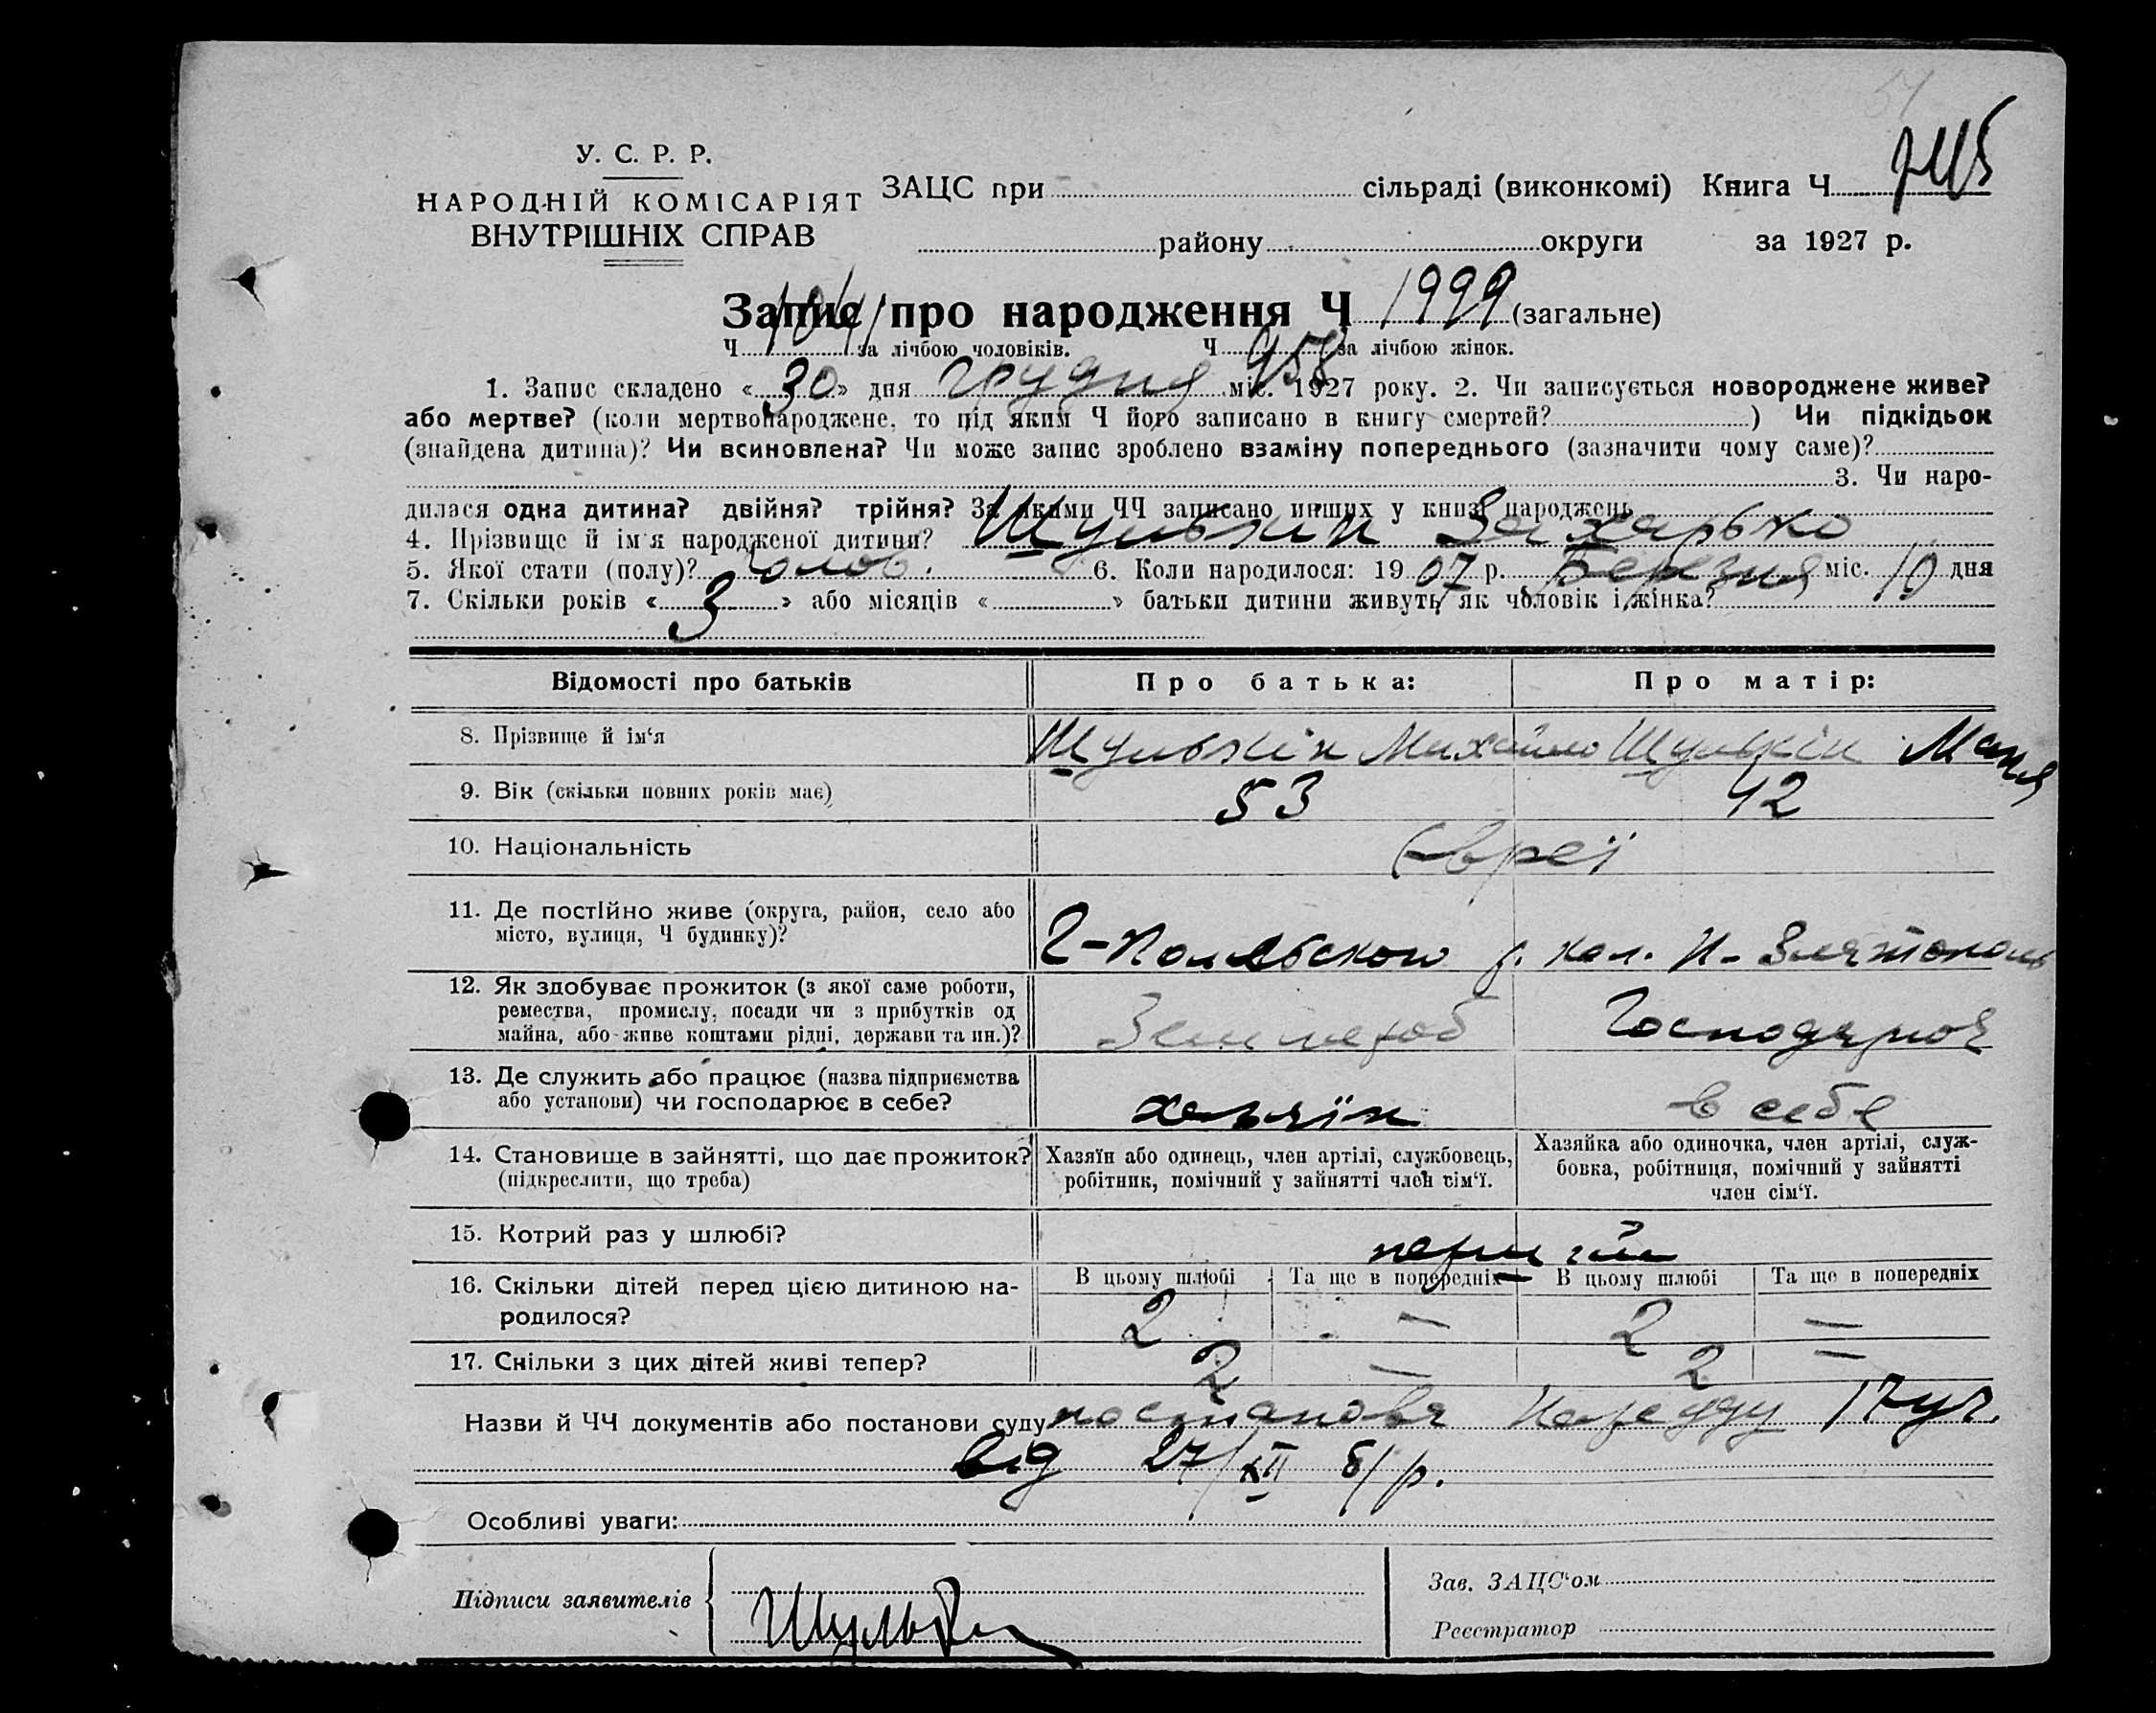 У. С. Р. Р.
НАРОДНІЙ КОМІСАРІЯТ
ВНУТРІШНІХ СПРАВ
ЗАЦС при сільраді (виконкомі) Книга Ч
району округи за 1927 р.
Запис про народження Ч 1999 (загальне)
Ч 1041 за лічбою чоловіків. Ч 958 за лічбою жінок.
1. Запис складено « 30 » дня грудня міс. 1927 року. 2. Чи записується новороджене живе?
або мертве? (коли мертвонароджене, то під яким Ч його записано в книгу смертей? ) Чи підкідьок
(знайдена дитина)? Чи всиновлена? Чи може запис зроблено взаміну попереднього (зазначити чому саме)?
3. Чи наро-
дилася одна дитина? двійня? трійня? За якими ЧЧ записано инших у книзі народжень
4. Прізвище й ім'я народженої дитини? Шулькин Захарько
5. Якої стати (полу)? Чолов. 6. Коли народилося: 19 07 р. Березня міс. 10 дня
7. Скільки років « 3 » або місяців « » батьки дитини живуть як чоловік і жінка?
Відомості про батьків Про батька: Про матір:
8. Прізвище й ім'я Шулькін Михайло Шулькін Маня
9. Вік (скільки повних років має) 53 42
10. Національність Євреї
11. Де постійно живе (округа, район, село або
місто, вулиця, Ч будинку)? Г-Польского р. кол. Н-Златополь
12. Як здобуває прожиток (з якої саме роботи,
ремества, промислу, посади чи з прибутків од
майна, або живе коштами рідні, держави та ин.)? Землероб
13. Де служить або працює (назва підприємства
або установи) чи господарює в себе? хазяїн в себе
14. Становище в зайнятті, що дає прожиток?
(підкреслити, що треба)
Хазяїн або одинець, член артілі, службовець,
робітник, помічний у зайнятті член сім'ї.
Хазяйка або одиночка, член артілі, служ-
бовка, робітниця, помічний у зайнятті
член сім'ї.
15. Котрий раз у шлюбі? перший
16. Скільки дітей перед цією дитиною на-
родилося?
В цьому шлюбі Та ще в попередніх В цьому шлюбі Та ще в попередніх
2 — 2 —
17. Скільки з цих дітей живі тепер? 2 — 2 —
Назви й ЧЧ документів або постанови суду постанова Нарсуду 17 уч.
від 27/XII б/р.
Особливі уваги:
Підписи заявителів
Шулькин
Зав. ЗАЦС'ом
Реєстратор